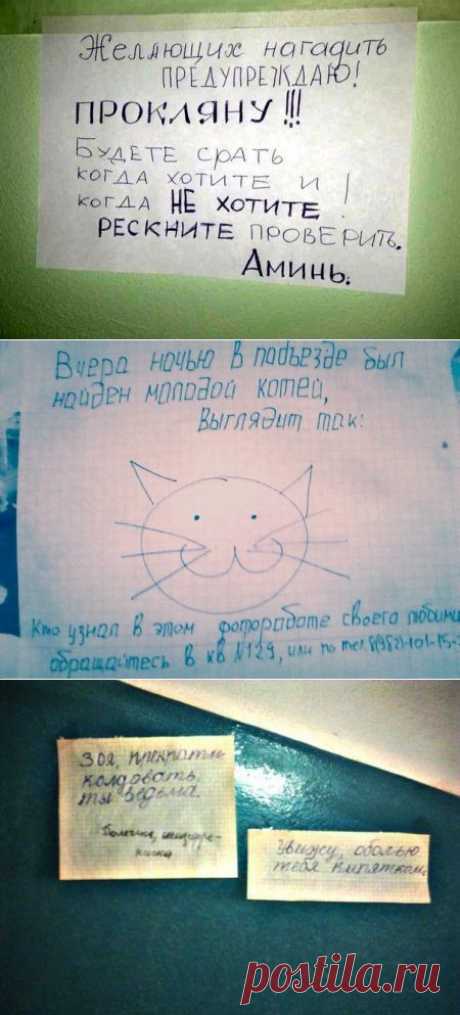 Желающих нагадить
ПРЕДУПРЕЖДАЮ!
ПРОКЛЯНУ!!!
БУДЕТЕ СРАТЬ
КОГДА ХОТИТЕ И
КОГДА НЕ ХОТИТЕ!
РЕСКНИТЕ ПРОВЕРИТЬ.
АМИНЬ.
Вчера ночью в подъезде был
найден молодой котей,
Выглядит так:
Кто узнал в этом фотороботе своего
обращайтесь в кв №129, или по тел. 8(952)-101-15-
Зоя, прекрати
колдовать,
ты ведьма.
Увижу, оболью
тебя кипятком.
postila.ru